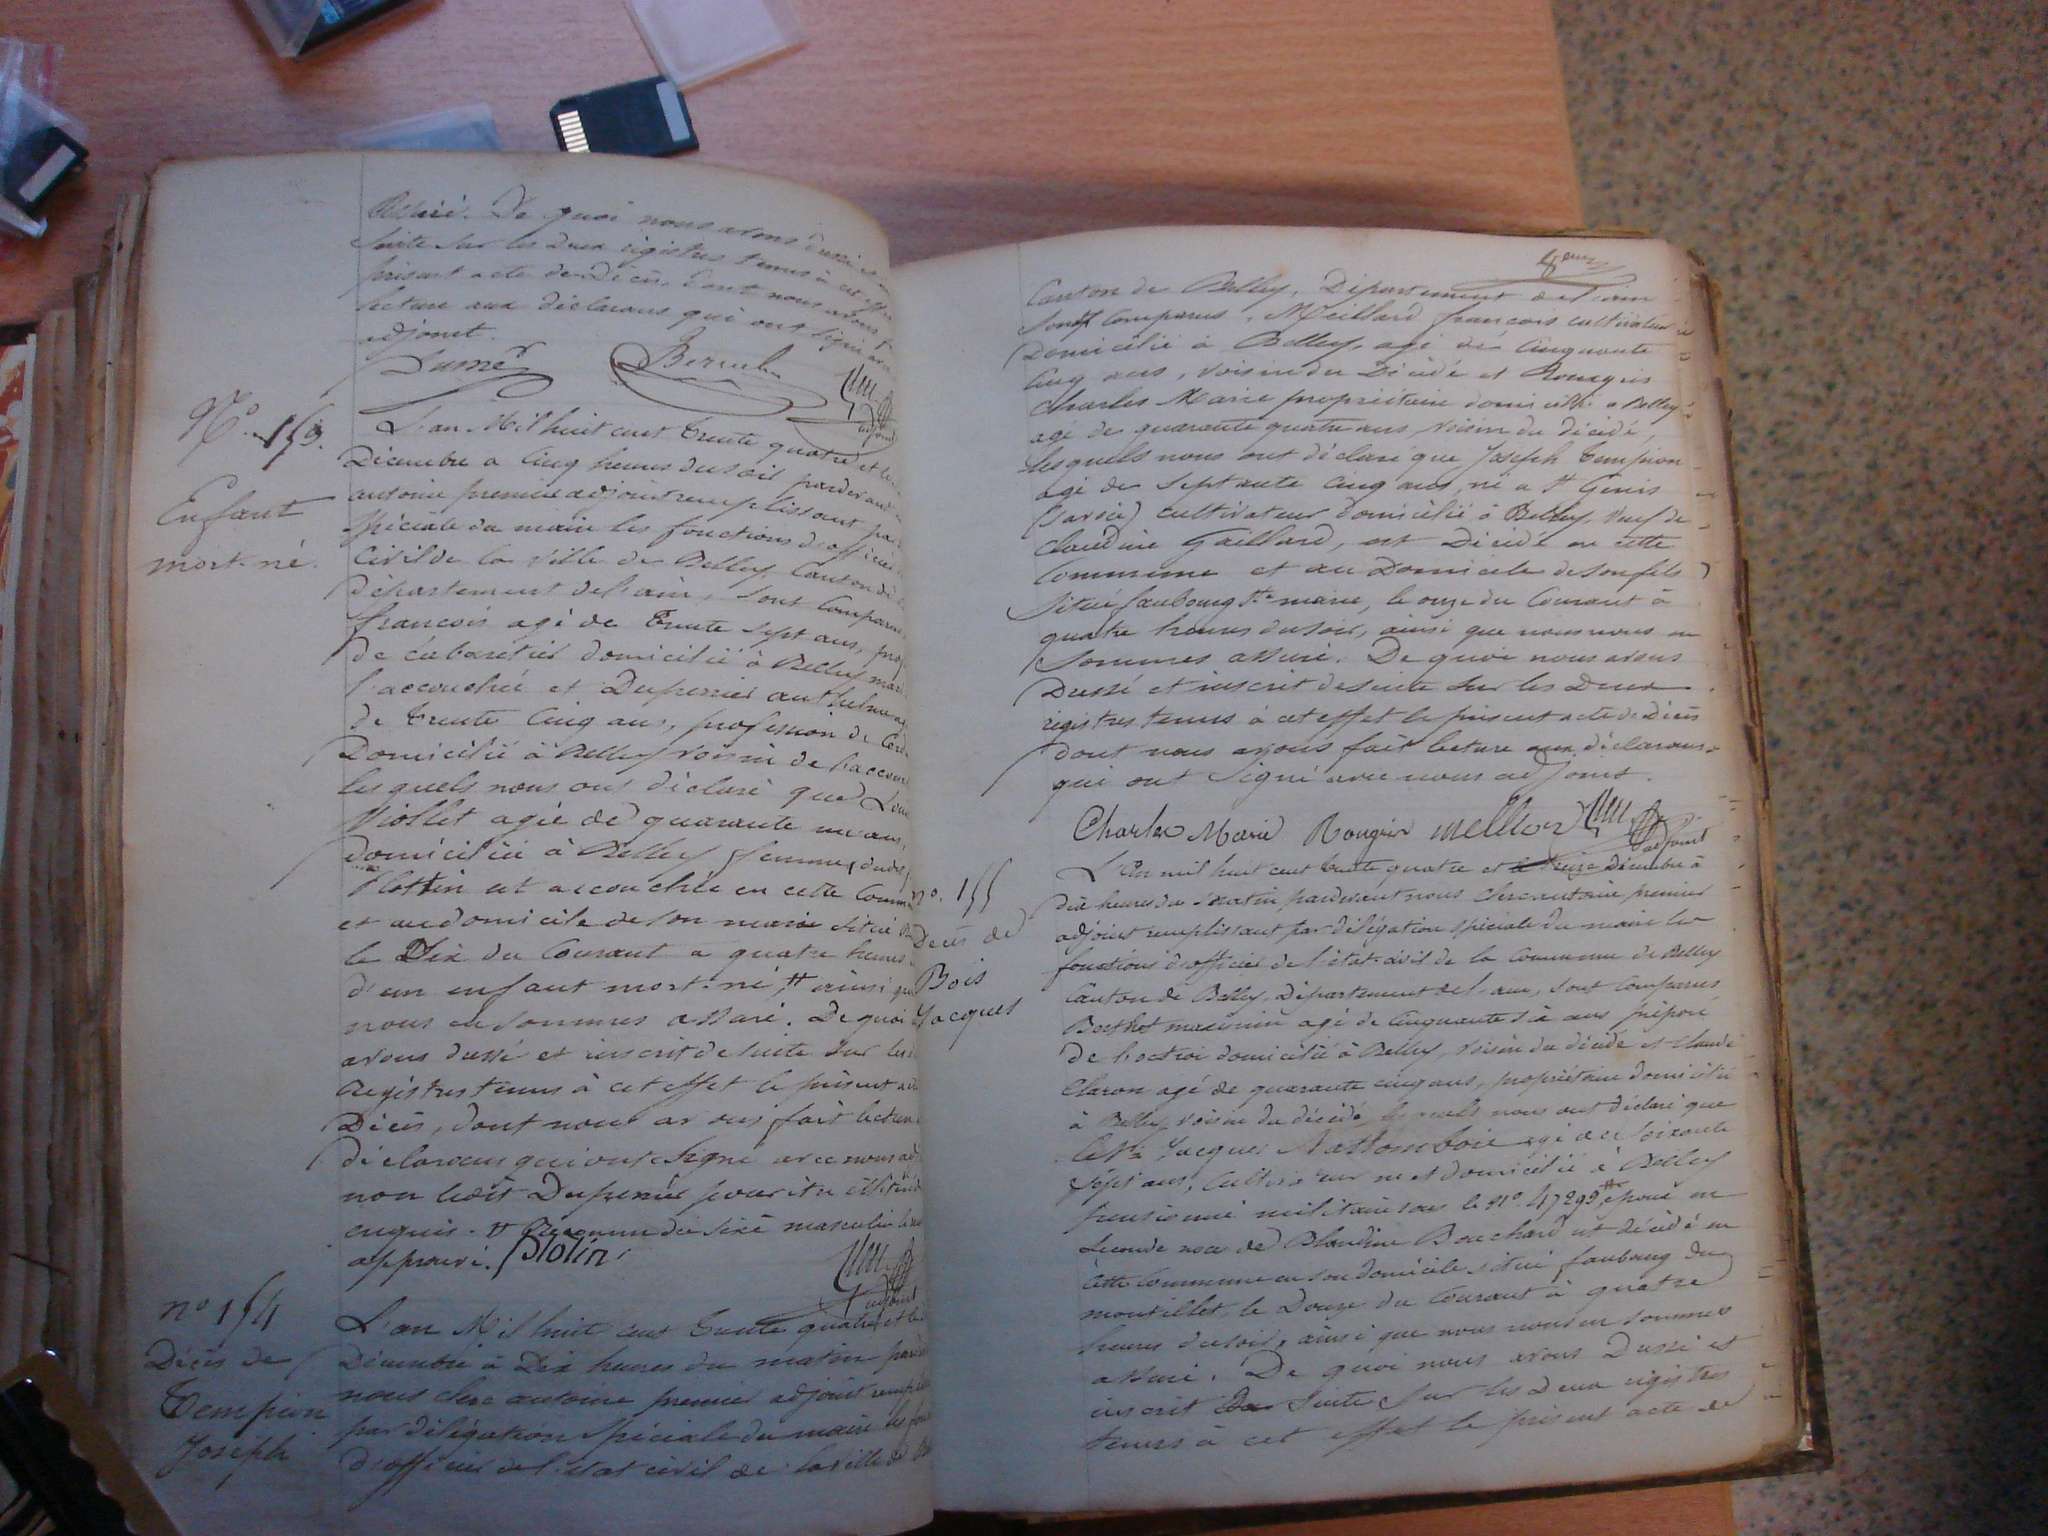 assuré. De quoi nous avons dressé et
suite sur les deux registres tenus à cet effet
présent acte de Décès, dont nous avons
lecture aux déclarans qui ont signé avec
adjoint.
N° 153.
Enfant
mort-né.
L'an Mil huit cent trente quatre et le
Décembre a cinq heures du soir pardevant
antoine premier adjoint remplissant par
spéciale du maire les fonctions d'officier
Civil de la ville de Belley Canton de
département de l'ain, sont comparus
françois agé de trente sept ans, prof
de cabaretier domicilié à Belley mari
l'accouchée et Duperrier anthelme
de trente cinq ans, profession de Cord
Domicilié à Belley voisin de l'accou
lesquels nous ont déclaré que
Viollet agée de quarante un ans,
domiciliée à Belley femme dudit
est accouchée en cette Comm
et au domicile de son mari situé
le Dix du Courant a quatre heures
d'un enfant mort-né # ainsi que
nous en sommes assuré. De quoi
avons dressé et inscrit de suite sur les
Registres tenus à cet effet le présent acte
Décès, dont nous avons fait lecture
déclarans qui ont signé avec nous adj
non ledit Duperrier pour être illitéré
enquis. # Reconnu du sexe masculin
approuvé. Plotin
adjoint
n° 154
Décès de
Tempion
Joseph
L'an Mil huit cent trente quatre et le
Décembre à Dix heures du matin parde
nous clerc antoine premier adjoint rempli
par délégation spéciale du maire les fon
d'officier de l'état civil de la ville de
Canton de Belley, Département de l'ain
sont comparus, Meillard françois cultivateur
Domicilié à Belley, agé de cinquante
cinq ans, voisin du Décédé et Rougris
Charles Marie propriétaire domicilié a Belley
agé de quarante quatre ans, voisin du décédé,
lesquels nous ont déclaré que Joseph tempion
agé de septante cinq ans, né a St Genis
(savoie) cultivateur domicilié à Belley, veuf de
claudine Gaillard, est Décédé en cette
Commune et au Domicile de son fils
situé faubourg Ste marie, le onze du Courant à
quatre heures du soir, ainsi que nous nous en
sommes assuré. De quoi nous avons
Dressé et inscrit de suite sur les Deux
registres tenus à cet effet le présent acte de Décès
dont nous avons fait lecture aux déclarans
qui ont signé avec nous adjoint.
Charles Marie
adjoint
n°. 155
Décès de
Bois
Jacques
L'an mil huit cent trente quatre et le treize Décembre à
dix heures du matin pardevant nous clerc antoine premier
adjoint remplissant par délégation spéciale du maire les
fonctions d'officier de l'état civil de la Commune de Belley
Canton de Belley, Département de l'ain, sont comparus
Berthet maximin agé de cinquante six ans préposé
de l'octroi domicilié à Belley, voisin du décédé et claude
Claron agé de quarante cinq ans, propriétaire domicilié
à Belley voisin du décédé lesquels nous ont déclaré que
Jacques agé de soixante
sept ans, cultivateur né et domicilié à Belley
pensionné militaire sous le N° 47299, époux en
seconde noce de Blandine Bouchard est décédé en
cette Commune en son domicile situé faubourg du
moutillet, le Douze du Courant à quatre
heures du soir, ainsi que nous nous en sommes
assuré. De quoi nous avons Dressé et
inscrit De suite sur les Deux registres
tenus à cet effet le présent acte de